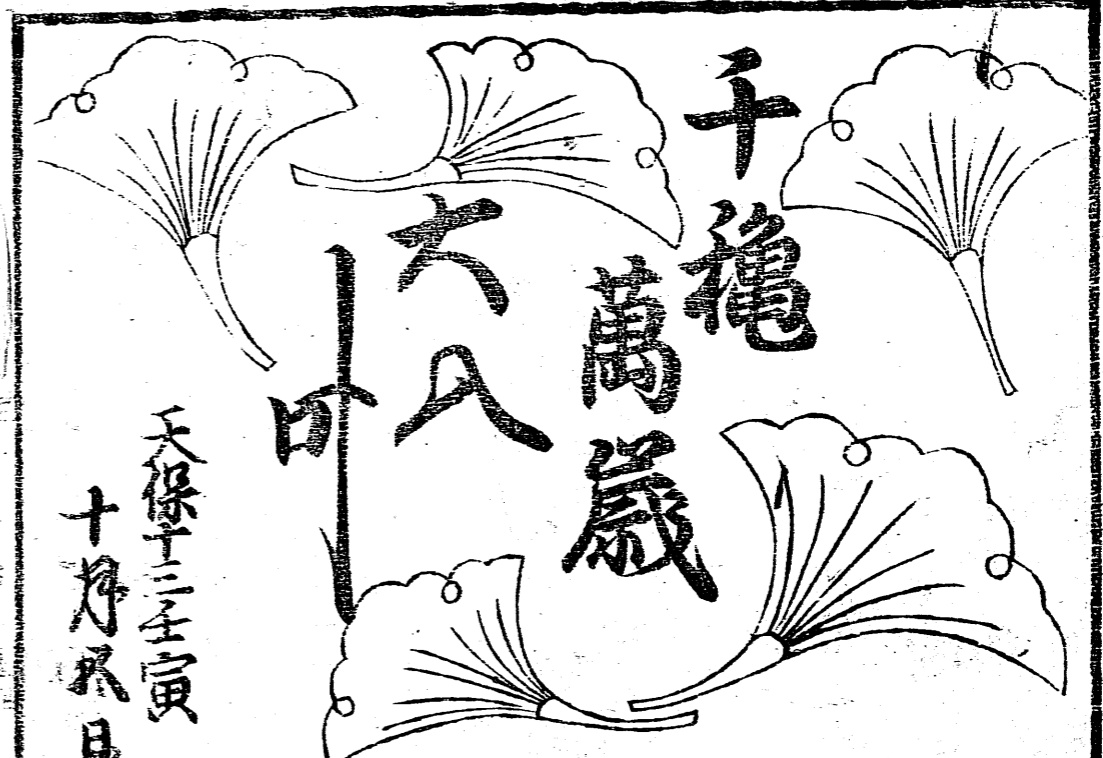 千穐
萬歳
大入
叶
天保十三壬寅
十月日